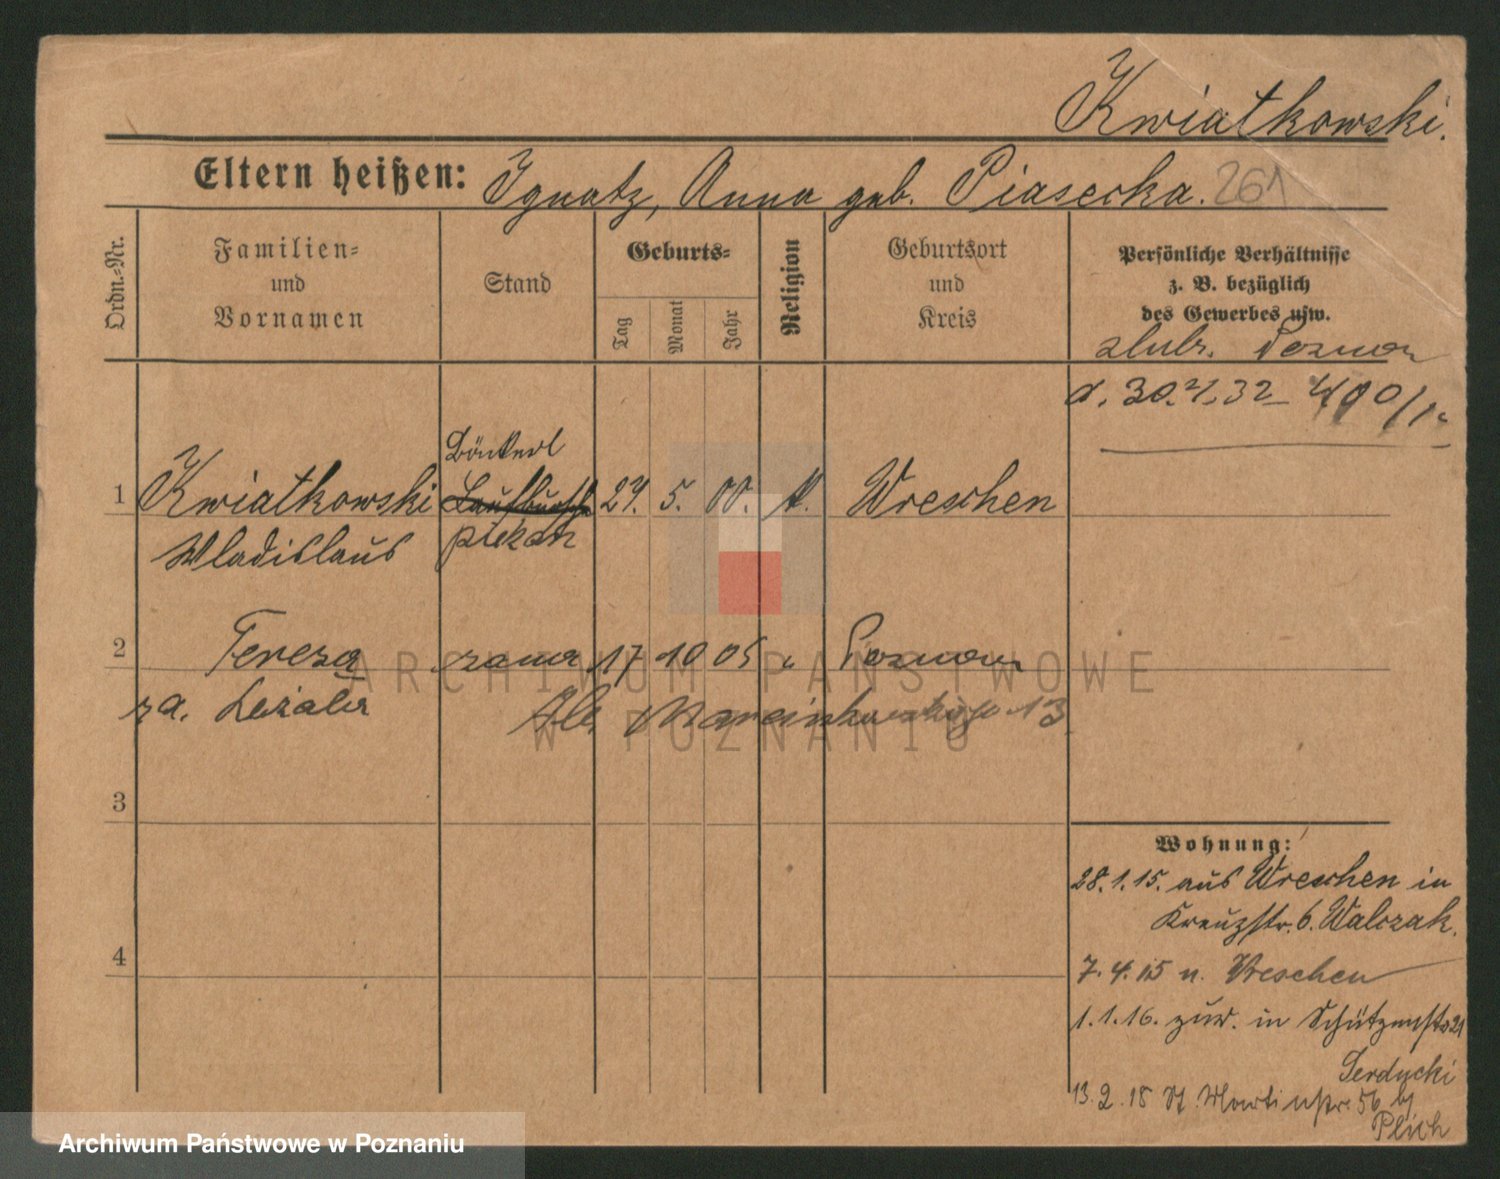 Kwiatkowski.
Eltern heißen: Ignatz, Anna geb. Piasecka. 261
Ordn.-Nr.
Familien- und Vornamen
Stand
Geburts-
Tag
Monat
Jahr
Religion
Geburtsort und Kreis
Persönliche Verhältnisse
z. B. bezüglich
des Gewerbes usw.
ślub. Poznań
d. 30. 32
1 Kwiatkowski Laufbursche 24. 5. 00. k. Wreschen
Wladislaus piekarz
2 Teresa 17 10 05 " Poznań
Marcinkowskiego 13
3
4
Wohnung:
28.1.15. aus Wreschen in
Kreuzstr. 6. Walczak.
7.4.15 n. Wreschen
1.1.16. zuw. in Schützenstr 21
Serdycki
13.2.18 St. Martinstr. 56 bj
Plich
ARCHIWUM PAŃSTWOWE
W POZNANIU
Archiwum Państwowe w Poznaniu